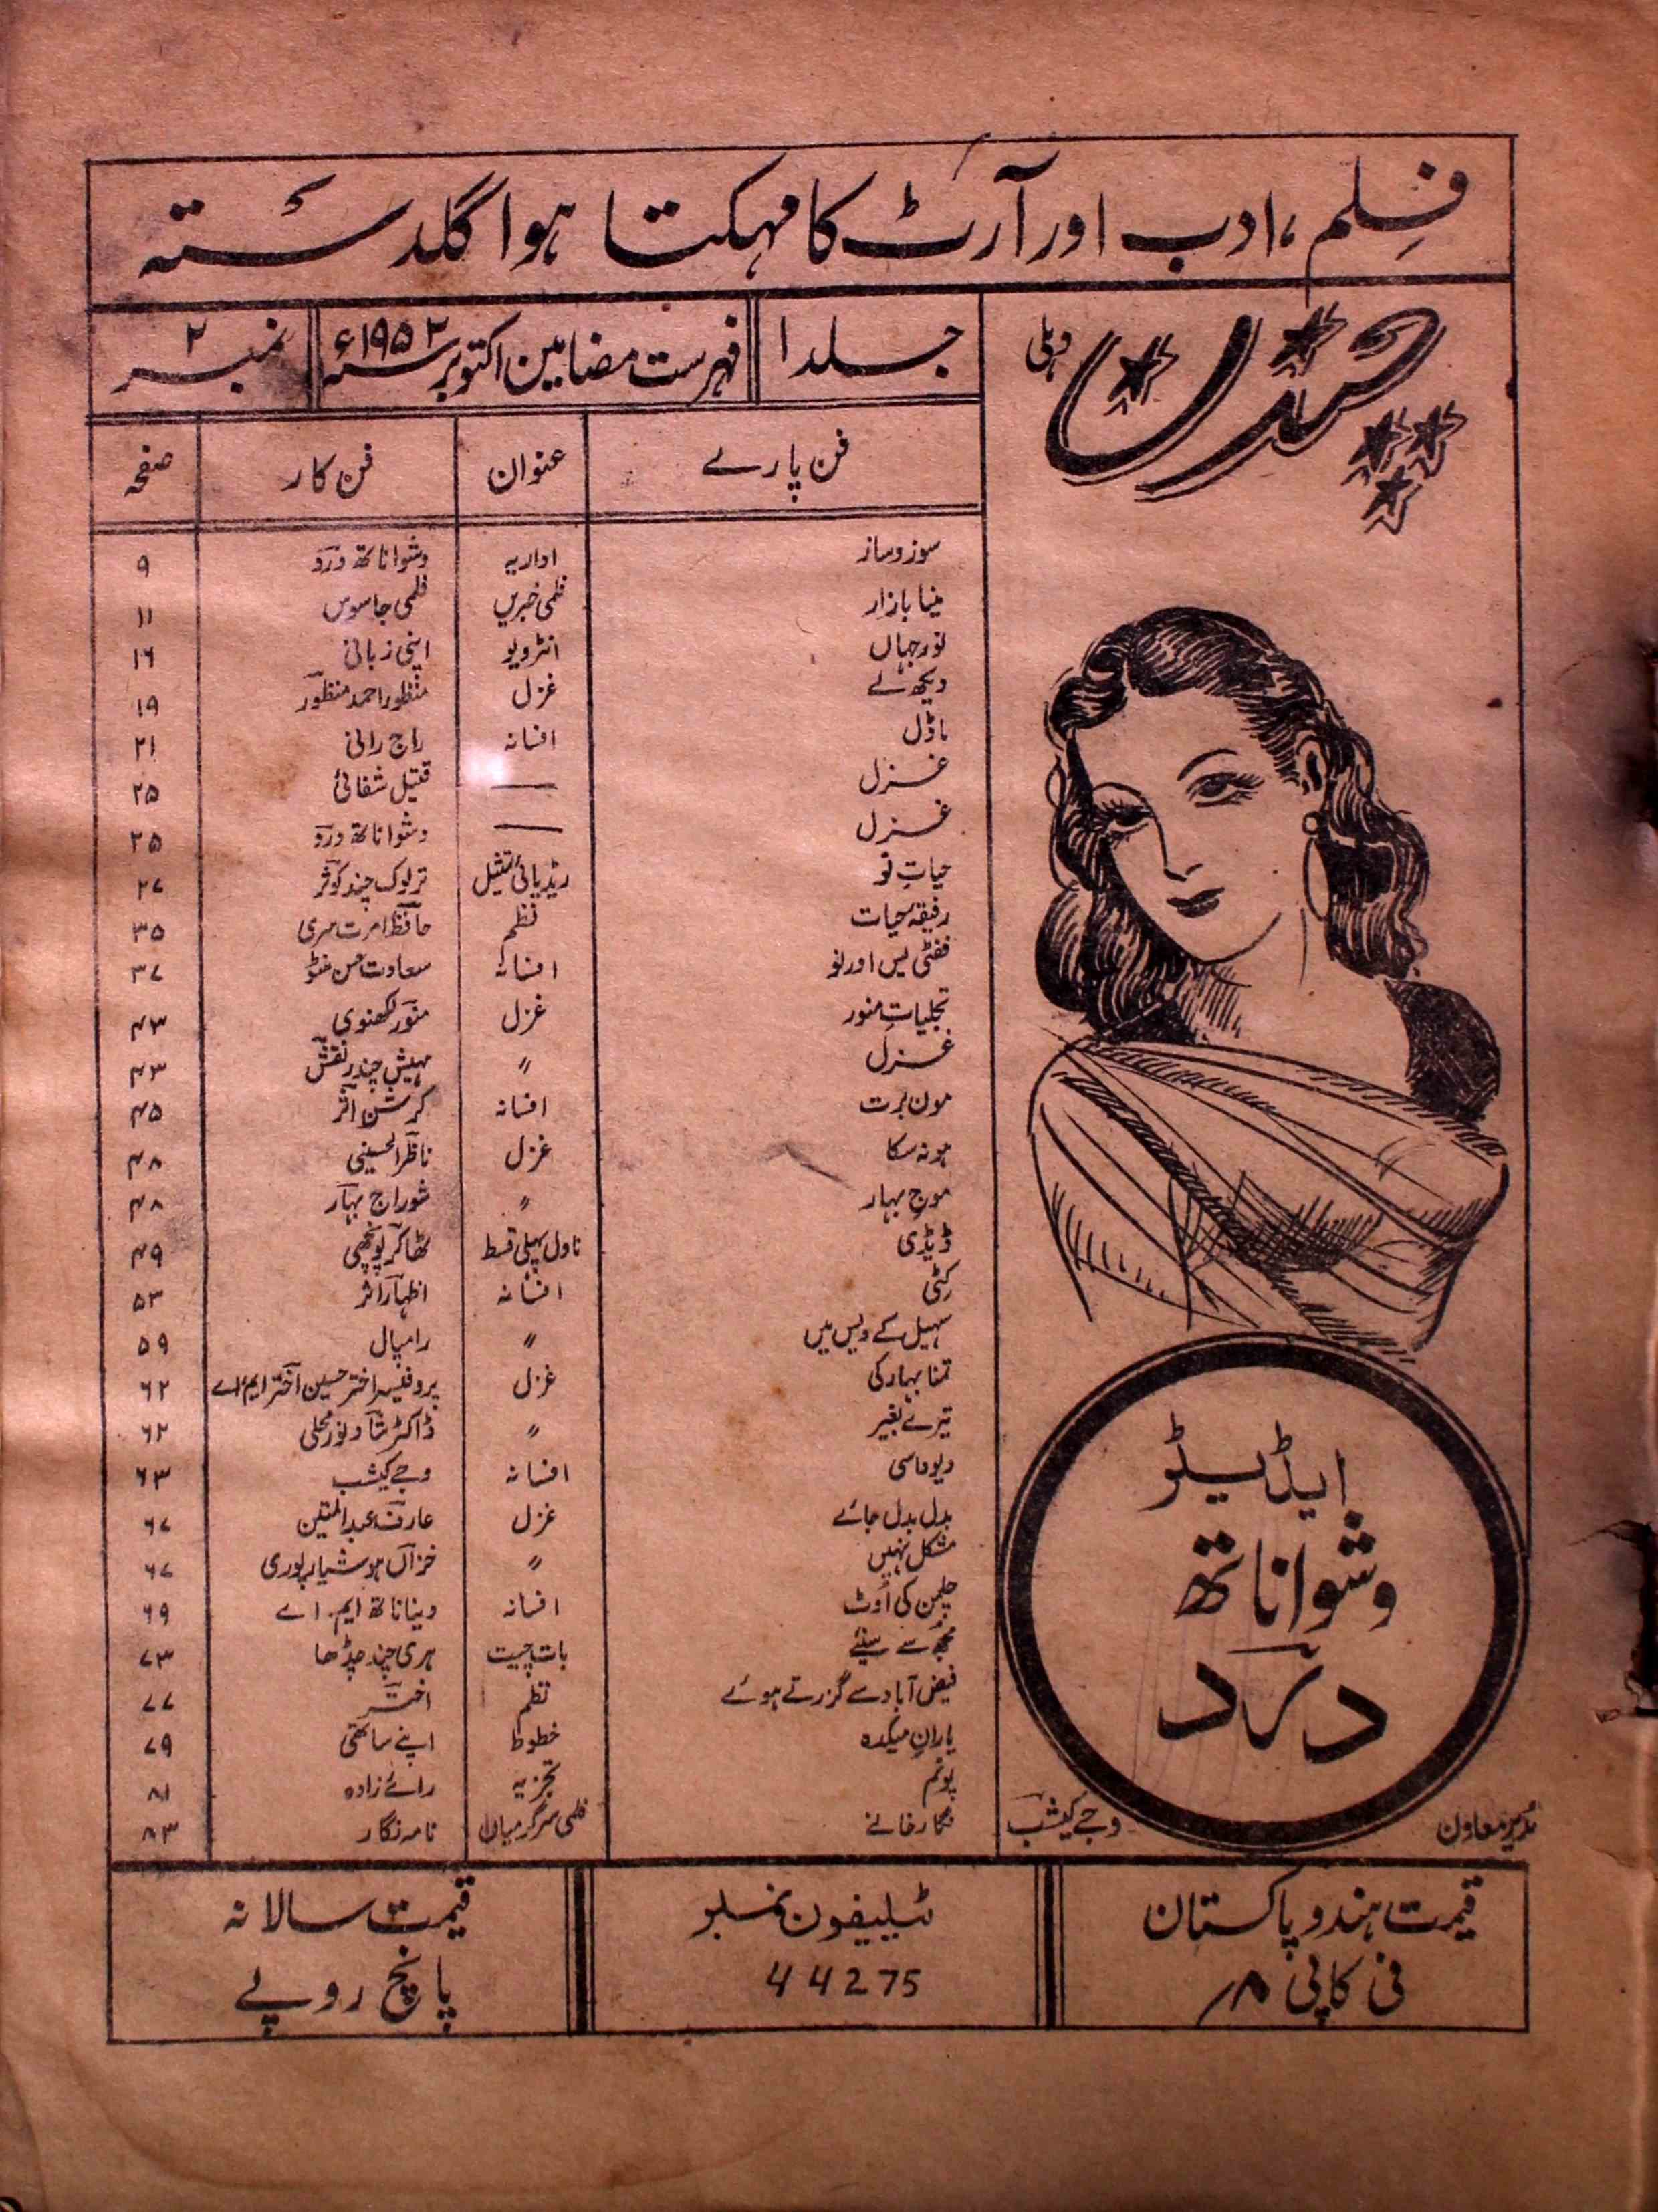 فلم، ادب اور آرٹ کا مہکتا ہوا گلدستہ
دہلی
جلد ۱ فہرست مضامین اکتوبر سنہ ۱۹۵۲ء نمبر ۲
فن پارے عنوان فن کار صفحہ
سوز و ساز اداریہ وشواناتھ درد ۹
مینا بازار فلمی خبریں فلمی جاسوس ۱۱
نور جہاں انٹرویو اپنی زبانی ۱۶
دیکھ لے غزل منظور احمد منظور ۱۹
ماڈل افسانہ راج رانی ۲۱
غزل — قتیل شفائی ۲۵
غزل — وشواناتھ درد ۲۵
حیاتِ نو ریڈیائی تمثیل ترلوک چند کوثر ۲۷
رفیقۂ حیات نظم حافظ امرت سری ۳۵
ففٹی یس اور نو افسانہ سعادت حسن منٹو ۳۷
تجلیاتِ منور غزل منور لکھنوی ۴۳
غزل 〃 مہیش چندر نقش ۴۳
مون برت افسانہ کرشن اثر ۴۵
ہو نہ سکا غزل ناظر الحسینی ۴۸
موج بہار 〃 شوراج بہار ۴۸
ڈیڈی ناول پہلی قسط ٹھاکر پونچھی ۴۹
کٹی افسانہ اظہار اثر ۵۳
سہیل کے دیس میں 〃 رامپال ۵۹
تمنا بہار کی غزل پروفیسر اختر حسین اختر ایم اے ۶۲
تیرے بغیر 〃 ڈاکٹر شاد نور محلی ۶۲
دیوداسی افسانہ وجے کیشب ۶۳
بدل بدل جائے غزل عارف عبدالمتین ۶۷
مشکل نہیں 〃 خزاں ہوشیارپوری ۶۷
چلمن کی اوٹ افسانہ دینا ناتھ ایم۔ اے ۶۹
مجھ سے سنئے بات چیت ہری چند چڈھا ۷۳
فیض آباد سے گزرتے ہوئے نظم اختر ۷۷
یارانِ میکدہ خطوط اپنے ساتھی ۷۹
پونم تجزیہ رائے زادہ ۸۱
نگار خانے فلمی سرگرمیاں نامہ نگار ۸۳
ایڈیٹر
وشواناتھ
درد
مدیر معاون وجے کیشب
قیمت ہند و پاکستان
فی کاپی ۸؍
ٹیلیفون نمبر
44275
قیمت سالانہ
پانچ روپے